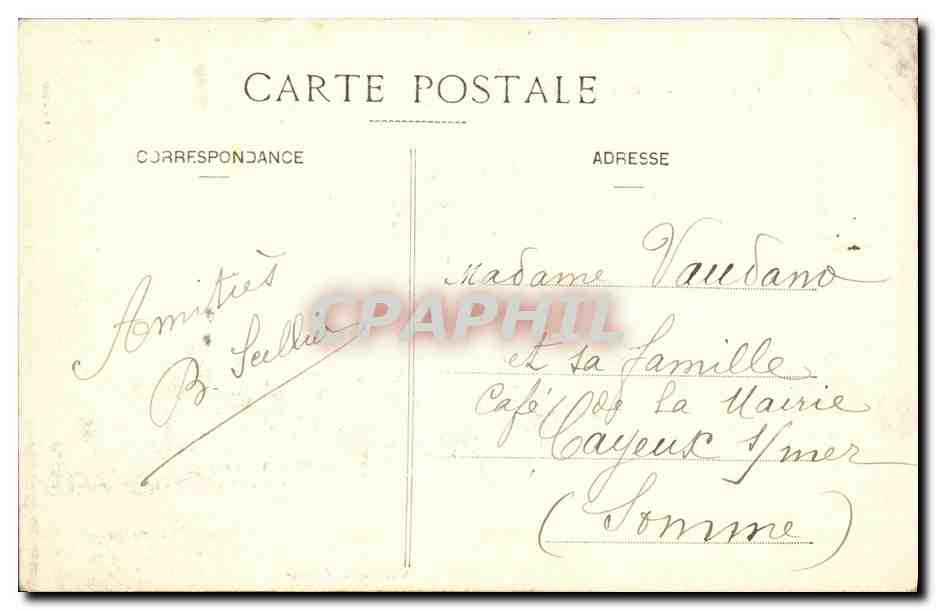 CARTE POSTALE
CORRESPONDANCE
ADRESSE
Amitiès
B.
Madame Vaudano
et sa famille
Café de la Mairie
Cayeux s/mer
(Somme)
CPAPHIL